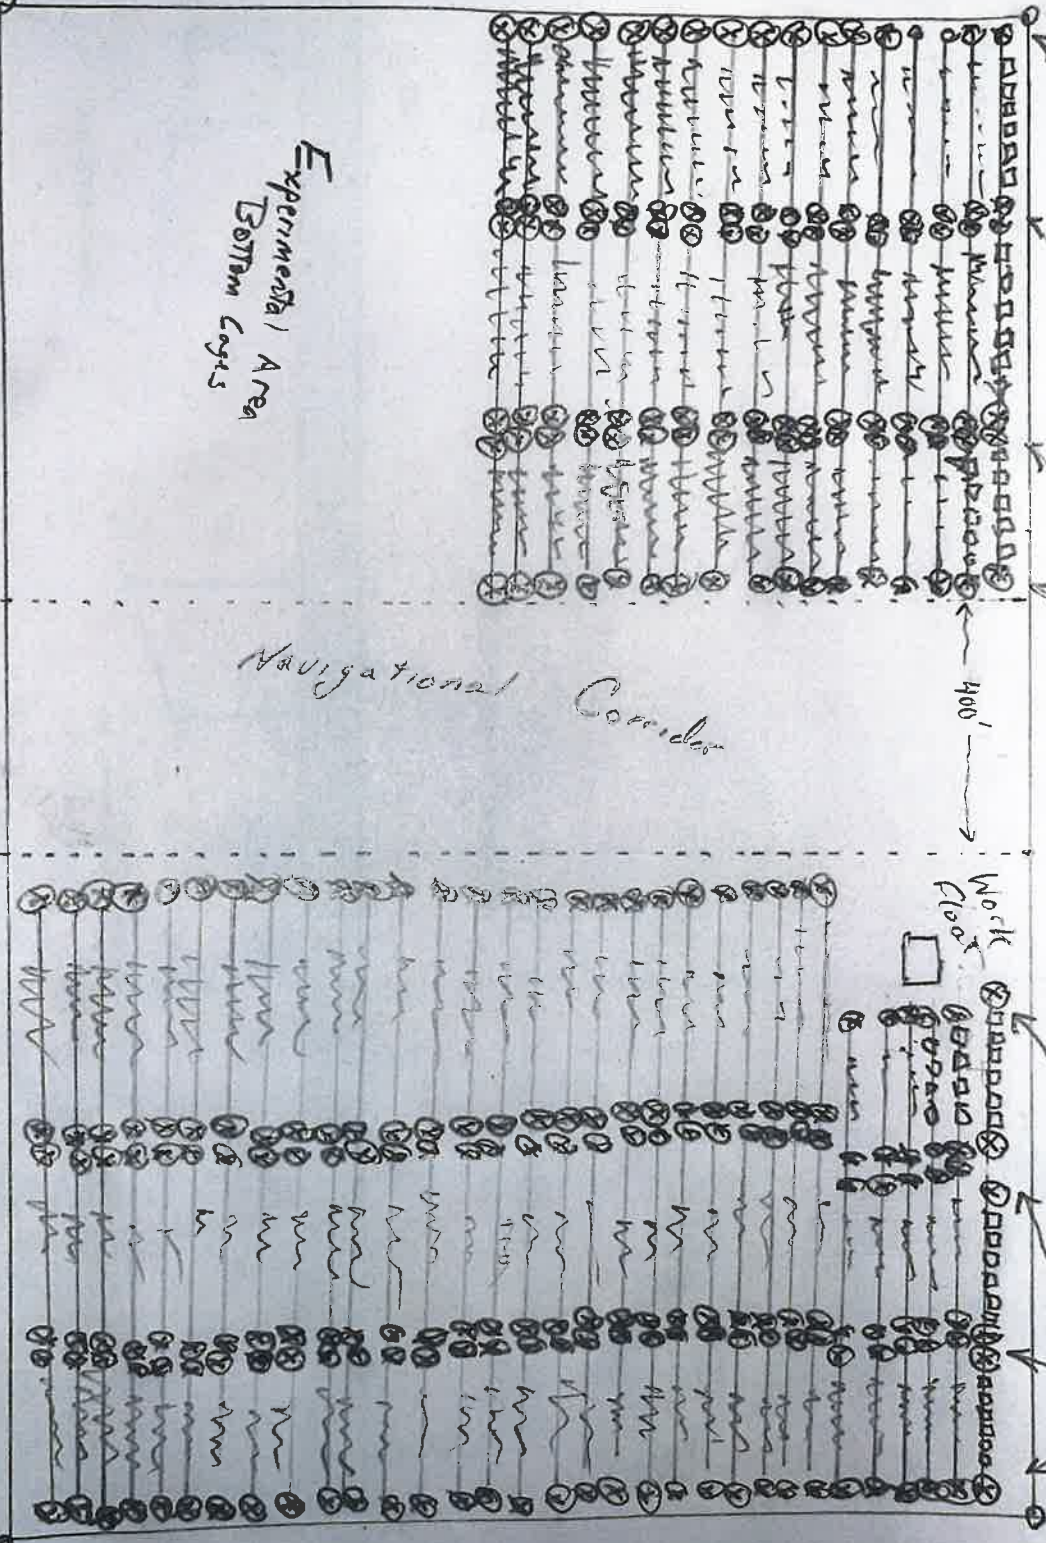 Experimental Area
Bottom Cages
Navigational Corridor
← 400' →
Work
Float